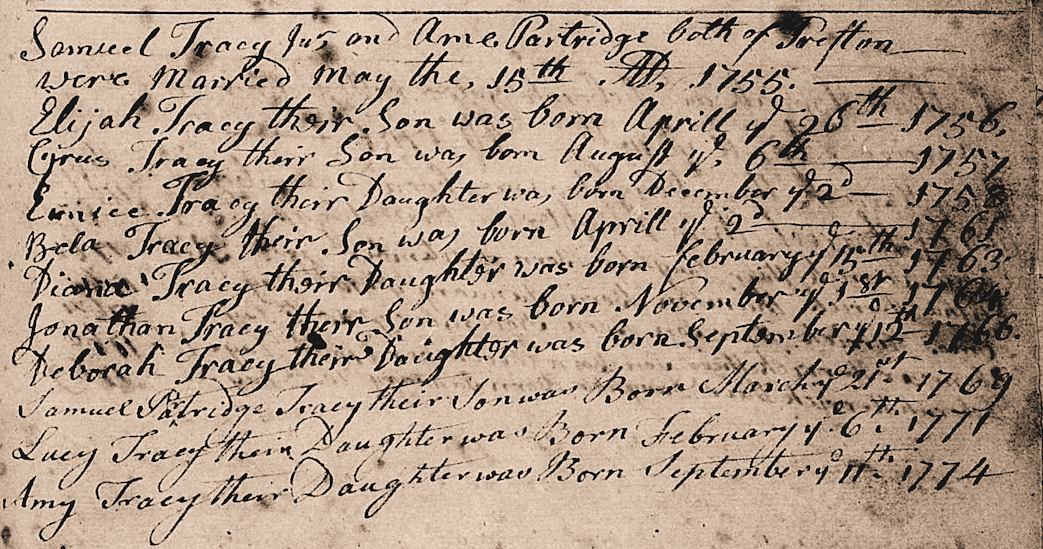 Samuel Tracy Junr and Ame Partridge both of Preston
were Married May the, 15th AD, 1755.
Elijah Tracy their Son was born Aprill ye 26th 1756,
Cyrus Tracy their Son was born August ye, 6th 1757
Eunice Tracy their Daughter was born December ye 2d 1758
Bela Tracy their Son was born Aprill ye 2d 1761
Diana Tracy their Daughter was born february ye 15th 1763
Jonathan Tracy their Son was born November ye 1st 1764
Deborah Tracy their Daughter was born September ye 12th 1766.
Samuel Patridge Tracy their Son was Born March ye 21st 1769
Lucy Tracy their Daughter was Born February ye 6th 1771
Amy Tracy their Daughter was Born September ye 11th 1774